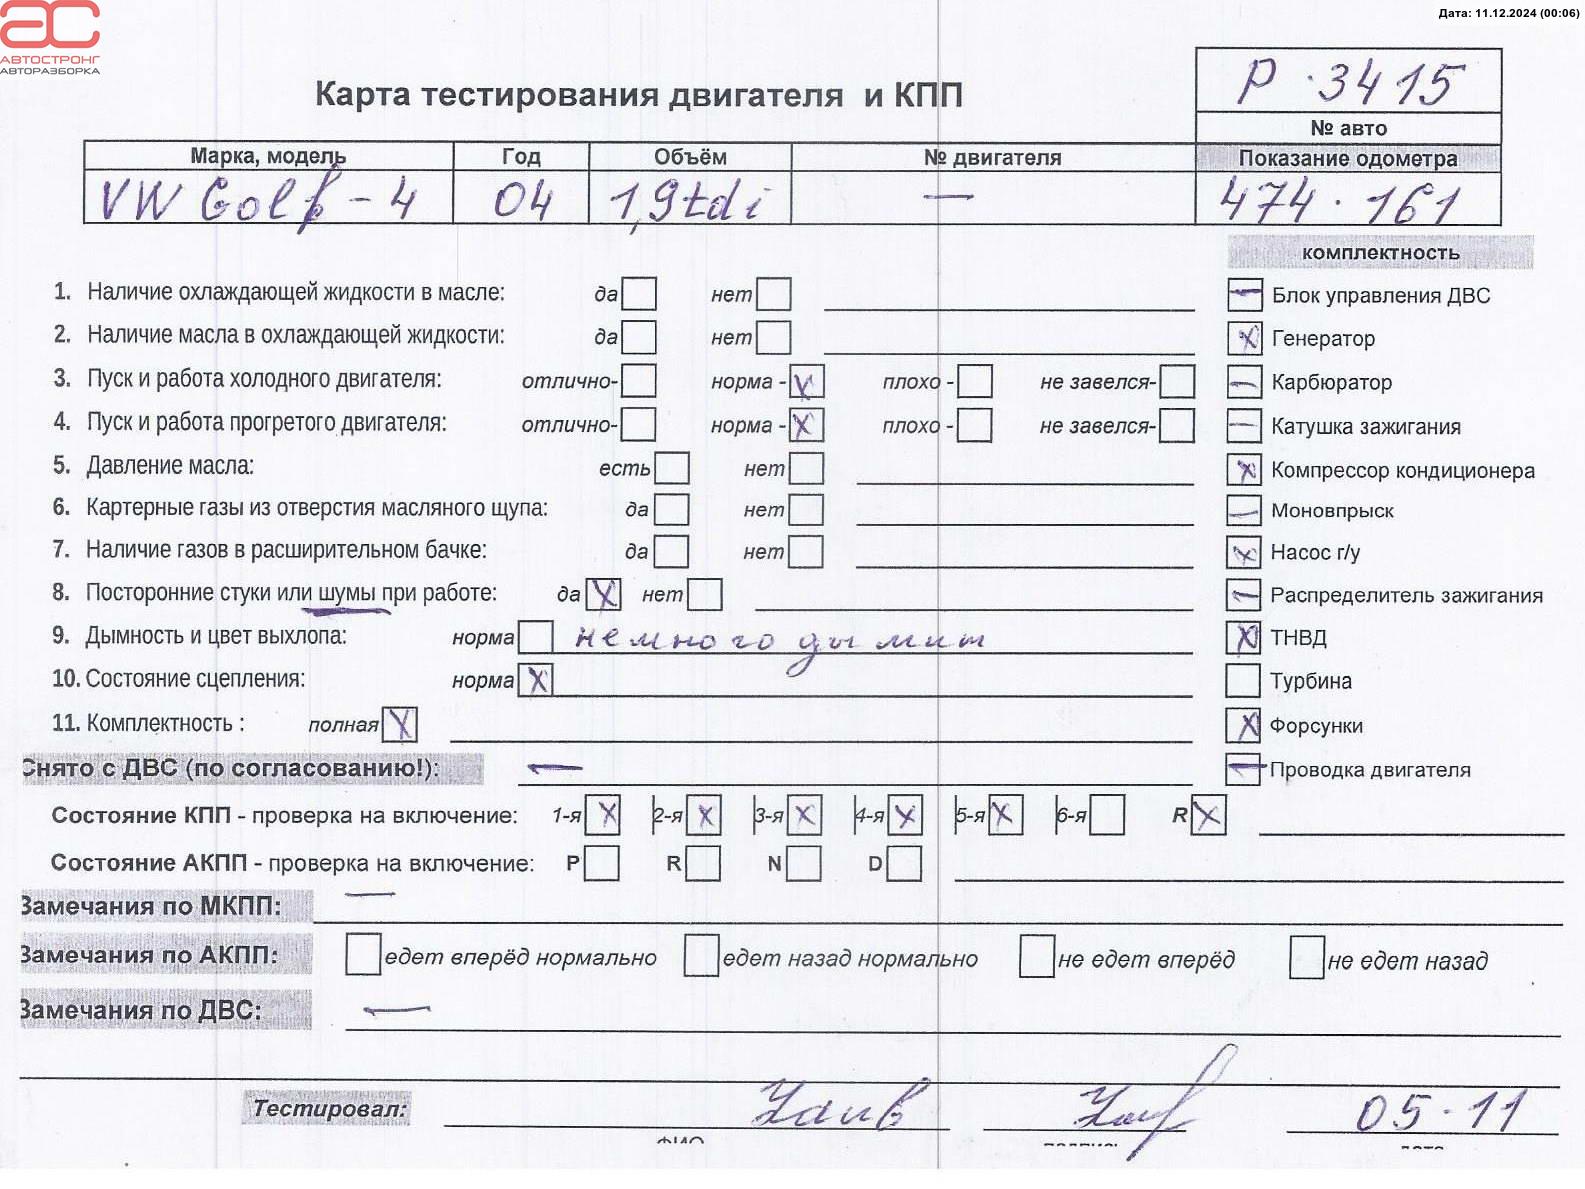 Дата: 11.12.2024 (00:06)
АВТОСТРОНГ
АВТОРАЗБОРКА
Карта тестирования двигателя и КПП
Р · 3415
№ авто
Марка, модель Год Объём № двигателя Показание одометра
VW Golf - 4 04 1,9tdi — 474 · 161
комплектность
1. Наличие охлаждающей жидкости в масле: да нет
Блок управления ДВС
2. Наличие масла в охлаждающей жидкости: да нет
Генератор
3. Пуск и работа холодного двигателя: отлично- норма - плохо - не завелся-
Карбюратор
4. Пуск и работа прогретого двигателя: отлично- норма - плохо - не завелся-
Катушка зажигания
5. Давление масла: есть нет
Компрессор кондиционера
6. Картерные газы из отверстия масляного щупа: да нет
Моновпрыск
7. Наличие газов в расширительном бачке: да нет
Насос г/у
8. Посторонние стуки или шумы при работе: да X нет
Распределитель зажигания
9. Дымность и цвет выхлопа: норма немного дымит
ТНВД
10. Состояние сцепления: норма X
Турбина
11. Комплектность : полная X
Форсунки
Снято с ДВС (по согласованию!): —
Проводка двигателя
Состояние КПП - проверка на включение: 1-я X 2-я X 3-я X 4-я X 5-я X 6-я R X
Состояние АКПП - проверка на включение: P R N D
Замечания по МКПП: —
Замечания по АКПП: едет вперёд нормально едет назад нормально не едет вперёд не едет назад
Замечания по ДВС: —
Тестировал: 05 · 11
ФИО подпись дата